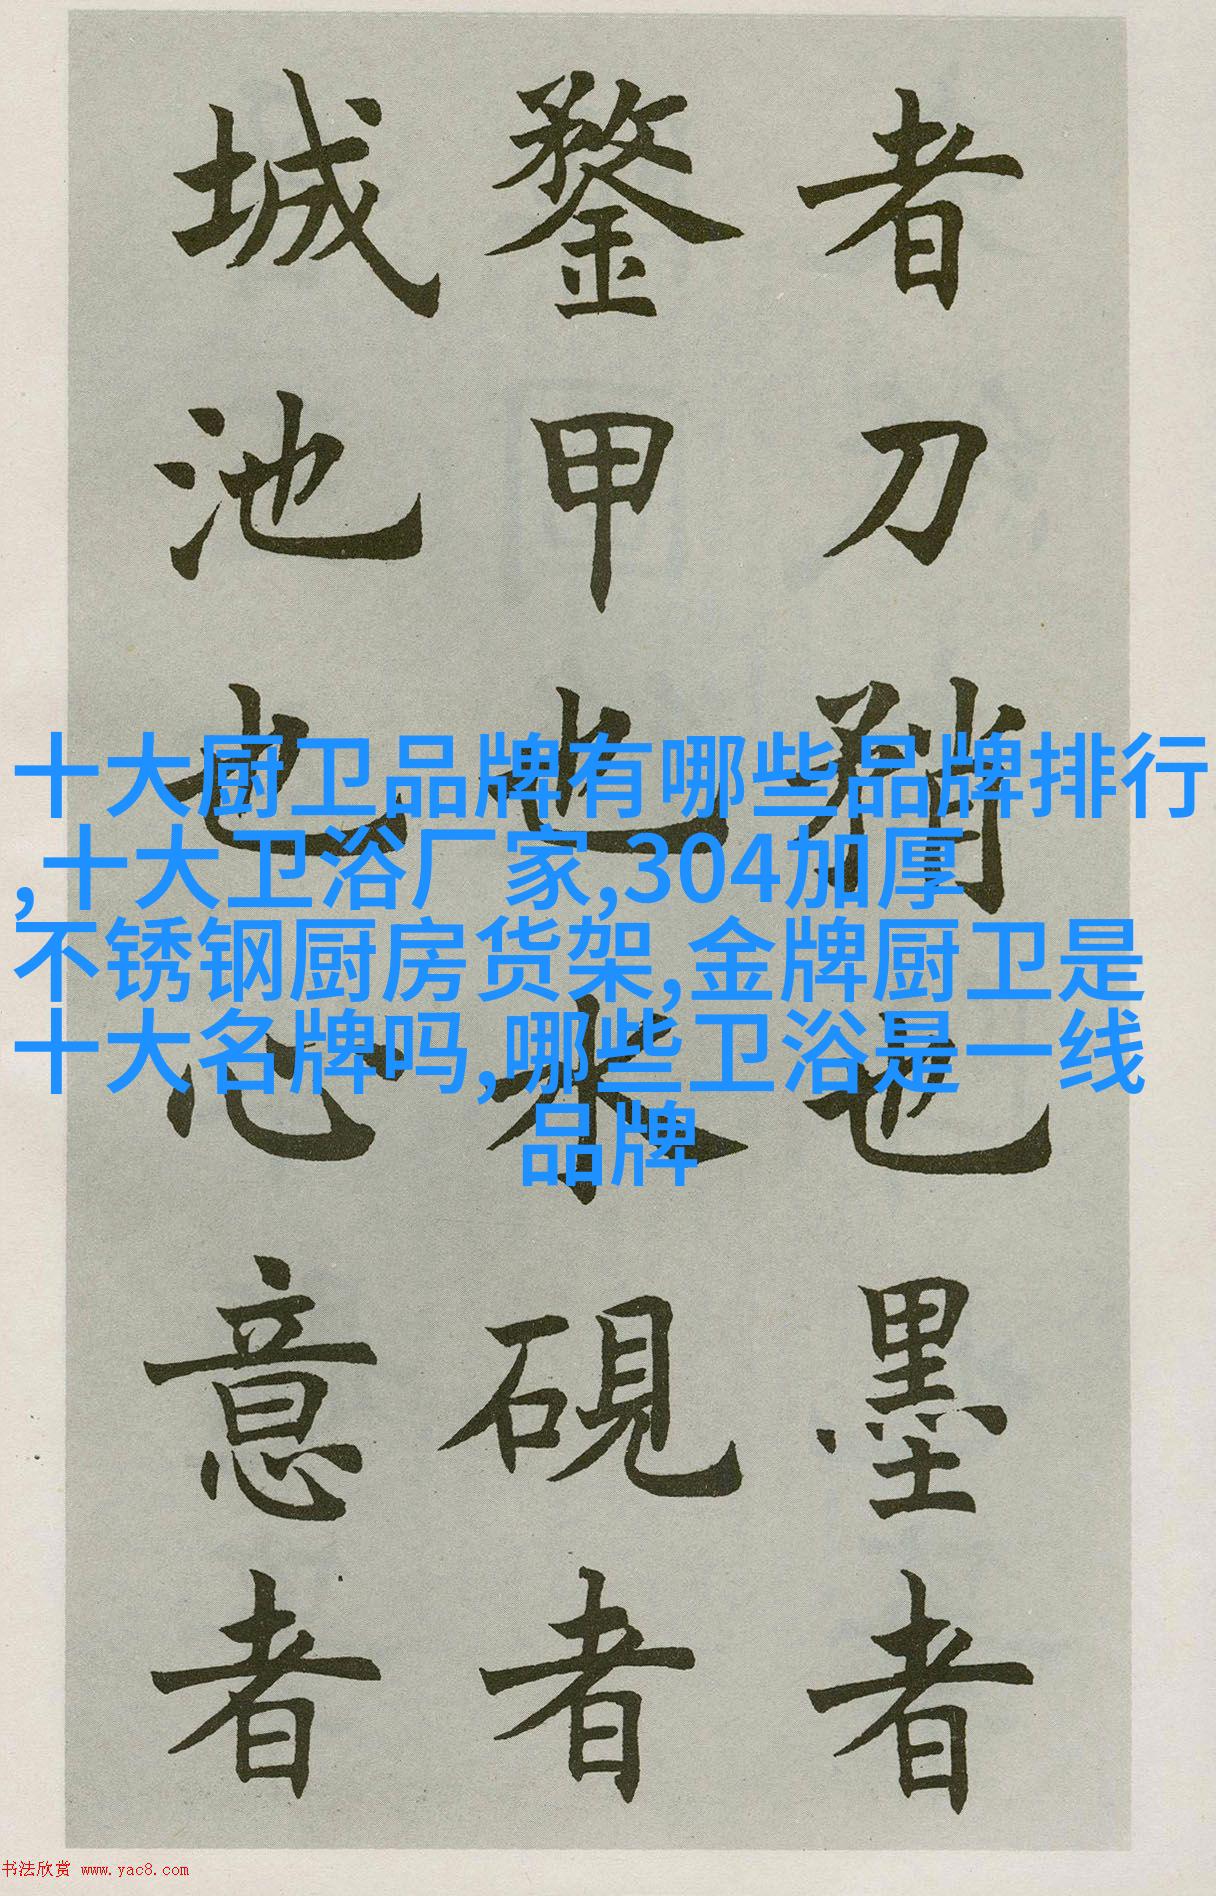 者刀矟也墨者
鍪甲也水硯者
城池也心意者
十大厨卫品牌有哪些品牌排行
,十大卫浴厂家,304加厚
不锈钢厨房货架,金牌厨卫是
十大名牌吗,哪些卫浴是一线
品牌
书法欣赏 www.yac8.com